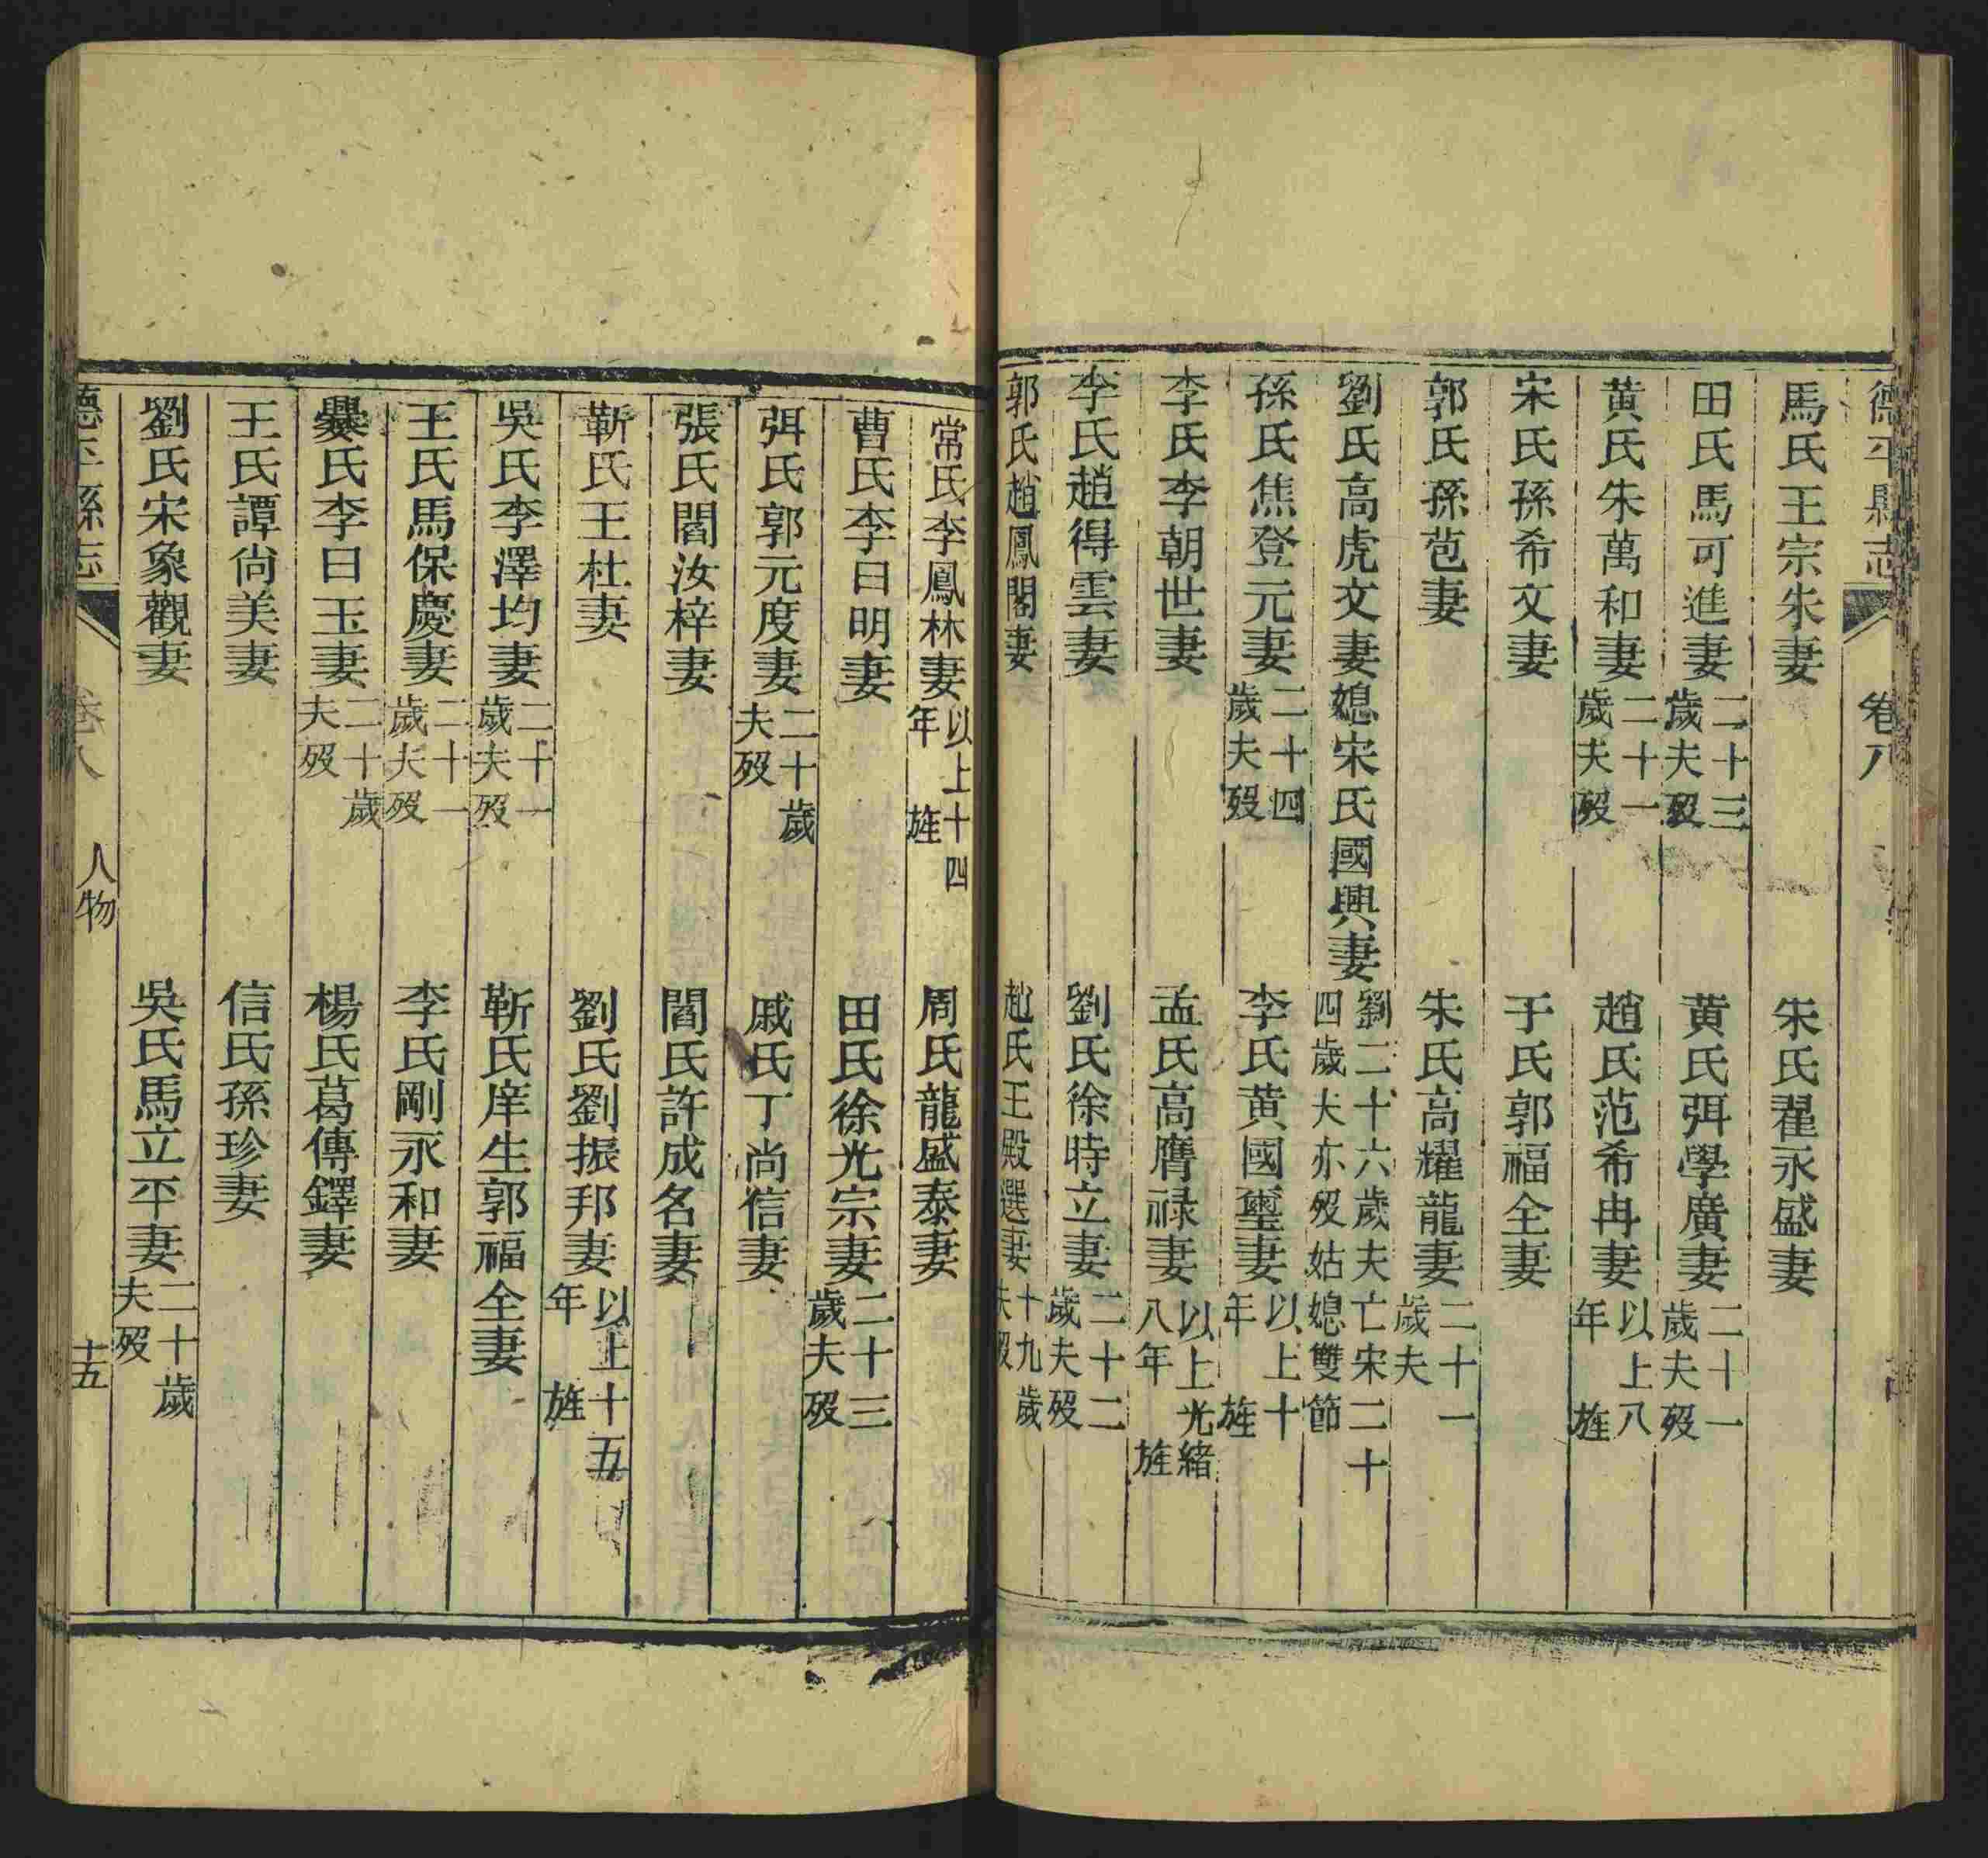 德平縣志 卷八
馬氏王宗朱妻 朱氏翟永盛妻
田氏馬可進妻二十三歲夫歿 黄氏弭學廣妻二十一歲夫歿
黄氏朱萬和妻二十一歲夫歿 趙氏范希冉妻以上八年旌
宋氏孫希文妻 于氏郭福全妻
郭氏孫苞妻 朱氏高耀龍妻二十一歲夫
劉氏高虎文妻媳宋氏國興妻劉二十六歲夫亡宋二十四歲夫亦歿姑媳雙節
孫氏焦登元妻二十四歲夫歿 李氏黄國璽妻以上十年旌
李氏李朝世妻 孟氏高膺禄妻以上光緒八年旌
李氏趙得雲妻 劉氏徐時立妻二十二歲夫歿
郭氏趙鳳閣妻 趙氏王殿選妻十九歲夫歿
常氏李鳳林妻以上十四年旌 周氏龍盛泰妻
曹氏李曰明妻 田氏徐光宗妻二十三歲夫歿
弭氏郭元度妻二十歲夫歿 戚氏丁尚信妻
張氏閻汝梓妻 閻氏許成名妻
靳氏王杜妻 劉氏劉振邦妻以上十五年旌
吳氏李澤均妻二十一歲夫歿 靳氏庠生郭福全妻
王氏馬保慶妻二十一歲夫歿 李氏剛永和妻
爨氏李曰玉妻二十歲夫歿 楊氏葛傳鐸妻
王氏譚尚美妻 信氏孫珍妻
劉氏宋象觀妻 吳氏馬立平妻二十歲夫歿
德平縣志 卷八 人物 十五